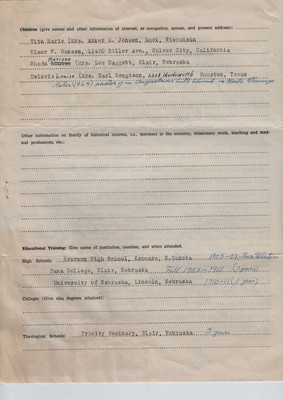 Children (give names and other information of interest, as occupation, spouse, and present address):
Vita Marie (Mrs. Anker M. Jensen, Luck, Wisconsin
Elmer P. Hansen, 11480 Diller Ave., Culver City, California
Rhoda (Mrs. Leo Daggett, Blair, Nebraska
Deloris Louise (Mrs. Earl Bengtson, Wordsworth Houston, Texas
Other information on family of historical interest, i.e., members in the ministry, missionary work, teaching and medical professions, etc.:
Educational Training: Give name of institution, location, and when attended.
High Schools: Brorson High School, Kenmare, N.Dakota 1905-07, Two Winters
Dana College, Blair, Nebraska Fall 1907-1910 (3 years)
University of Nebraska, Lincoln, Nebraska 1910-11 (1 year)
Colleges (Give also degrees attained):
Theological Schools: Trinity Seminary, Blair, Nebraska 3 years